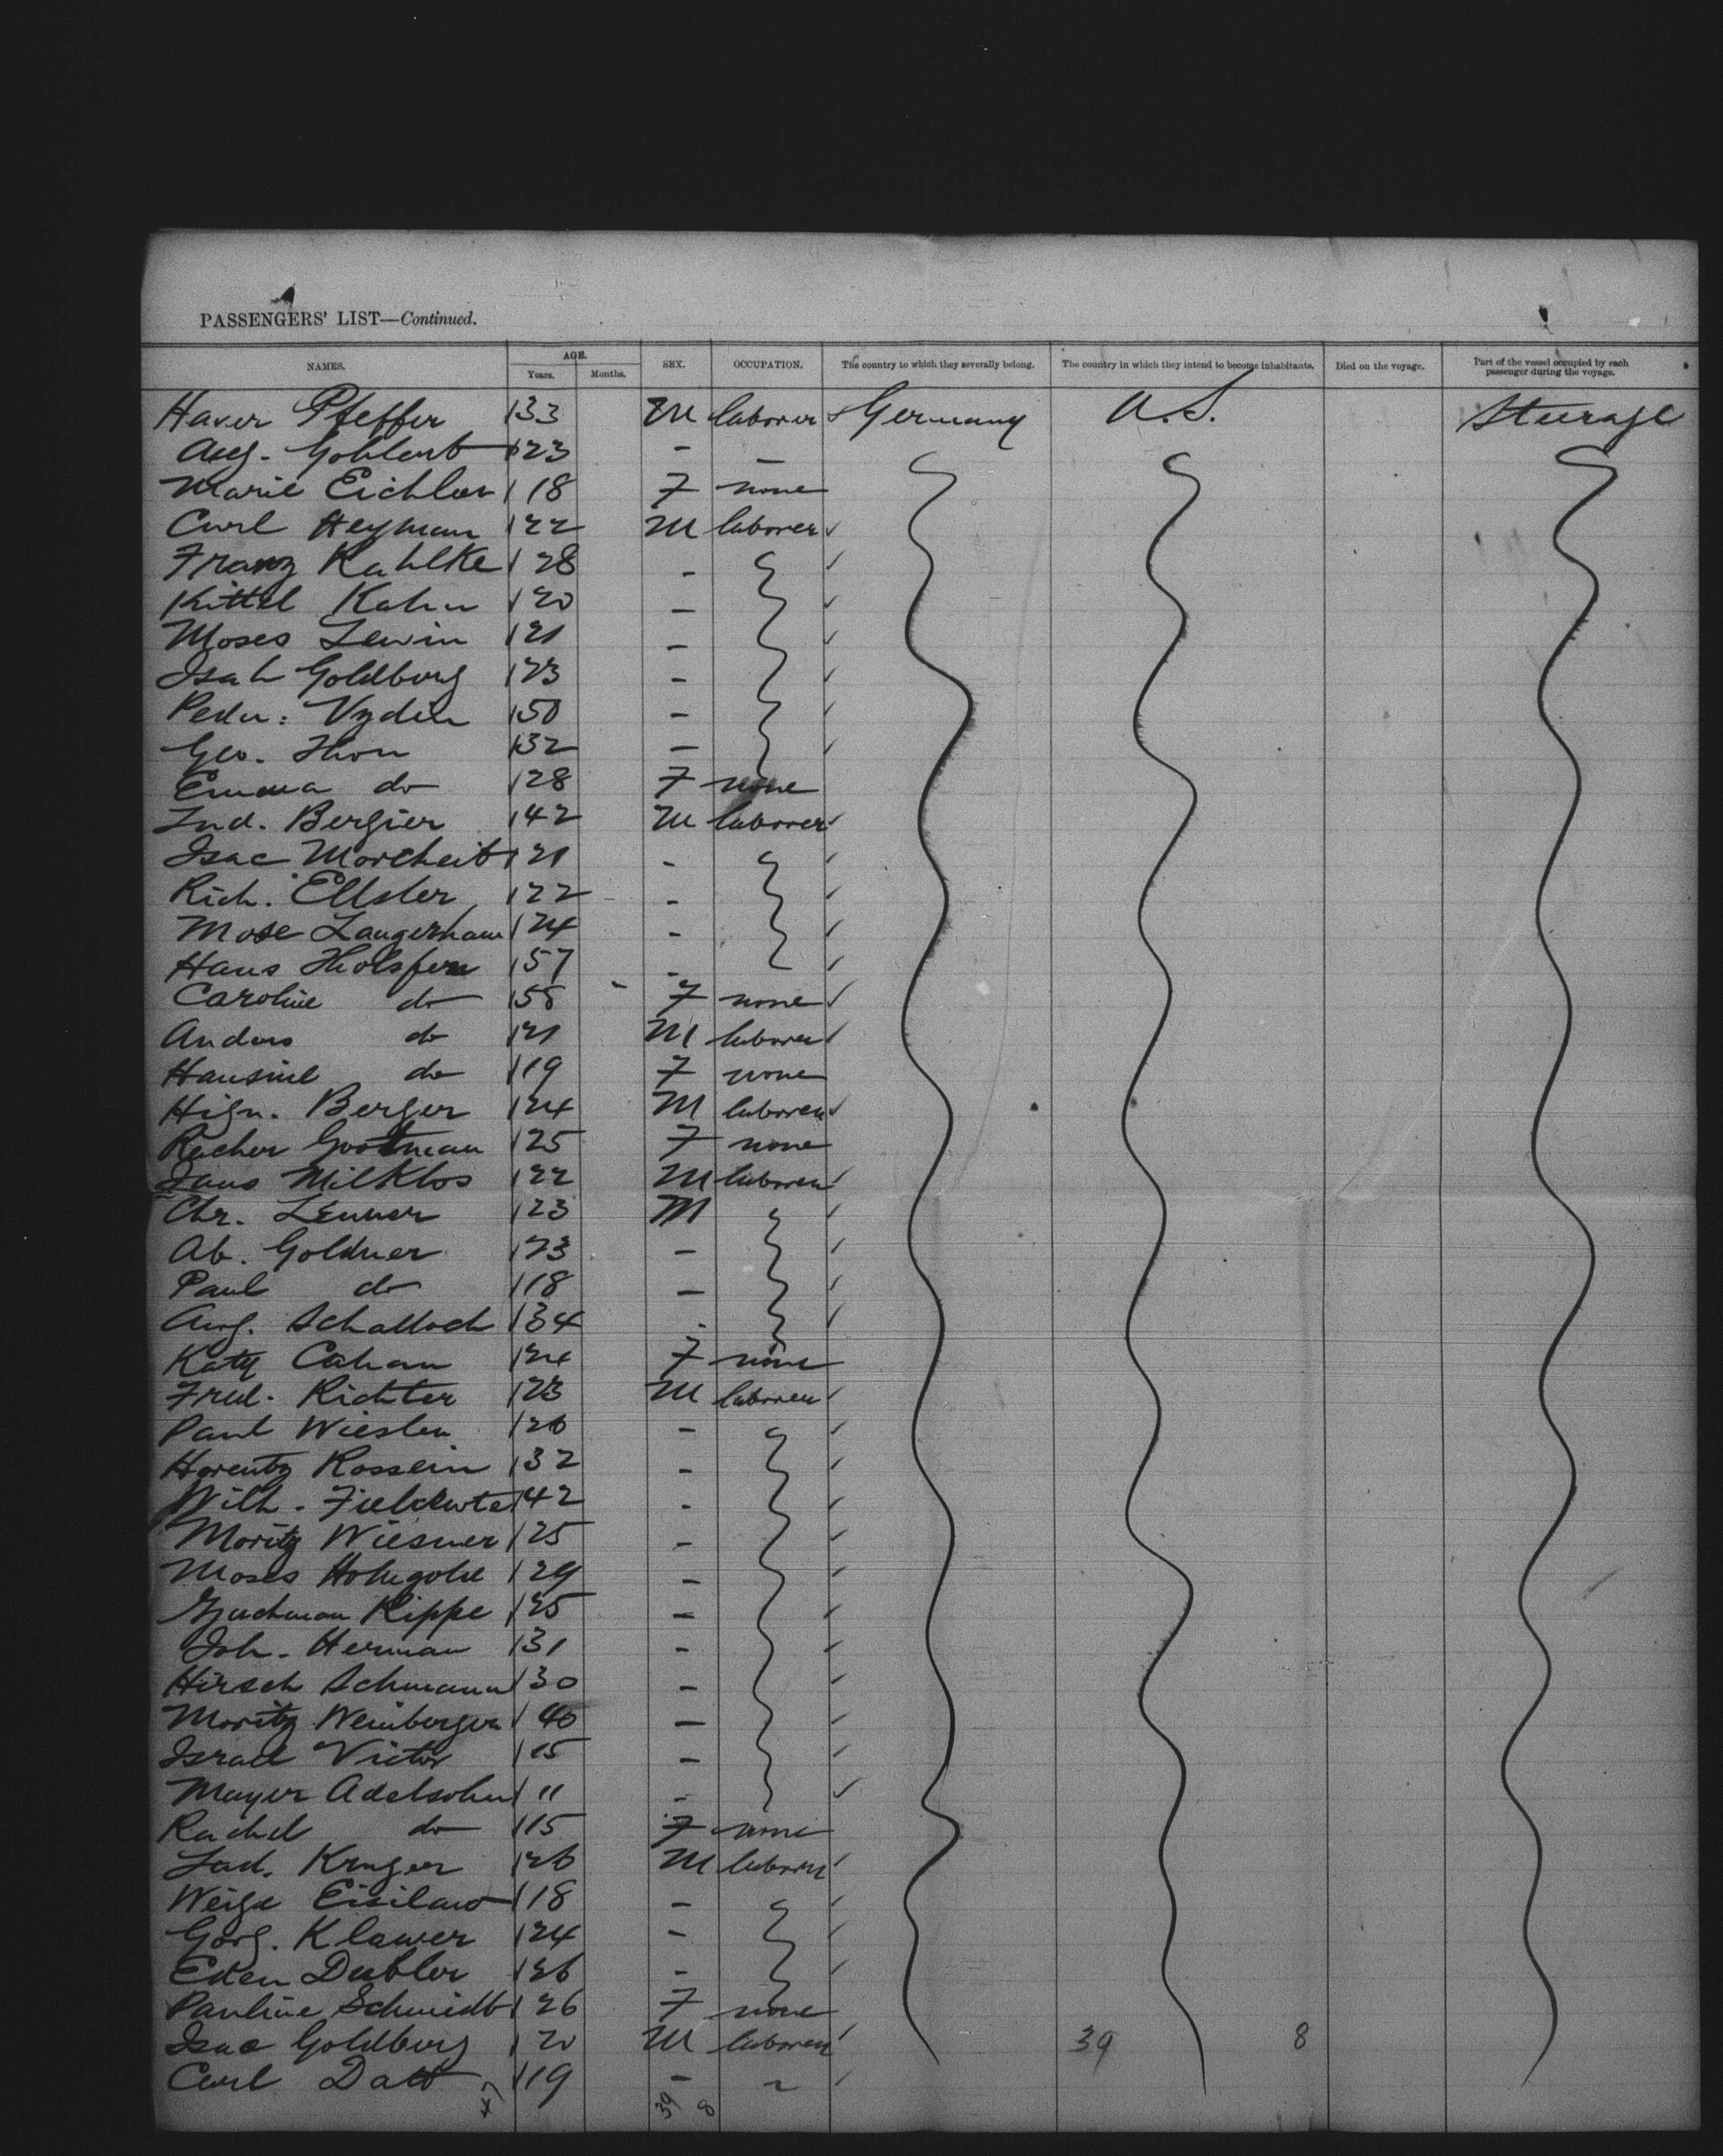 PASSENGERS' LIST—Continued.
NAMES. AGE. Years. Months. SEX. OCCUPATION. The country to which they severally belong. The country in which they intend to become inhabitants. Died on the voyage. Part of the vessel occupied by each passenger during the voyage.
Haver Pfeffer 33 M laborer Germany U.S. Steerage
Aug. 23 - -
Marie Eichler 18 F none
Carl Heyman 22 M laborer
Franz Kahlke 28 -
Kittel Kahn 20 -
Moses Lewin 21 -
Isak Goldburg 23 -
50 -
Geo. Thon 32 -
Emma do 28 F none
Lud. Bergier 42 M laborer
Isac Morcheit 21 -
Rich. Ellsler 22 -
Mose Langerhaus 24 -
Hans 57 -
Caroline do 58 F none
Anders do 21 M laborer
Hansine do 19 F none
Hign. Berger 24 M laborer
Gootman 25 F none
Janos Milklos 22 M laborer
Chr. Lenner 23 M
Ab. Goldner 23 -
Paul do 18 -
Aug. Schalloch 34 -
Katy Cahan 24 F none
Fred. Richter 23 M laborer
Paul Wiesler 26 -
Rossein 32 -
Wilh. 42 -
Moritz Wiesner 25 -
Moses 29 -
Kippe 25 -
Joh. Herman 31 -
Hirsch Schumann 30 -
Moritz Weinberger 40 -
Israel Victor 15 -
Mayer Adelsohn 11 -
Rachel do 15 F none
Lad. Kruger 26 M laborer
18 -
Gorg. Klawer 24 -
Dubler 26 -
Pauline Schmidt 26 F none
Isac Goldburg 20 M laborer 39 8
Carl Datt 19 -
47 39 8